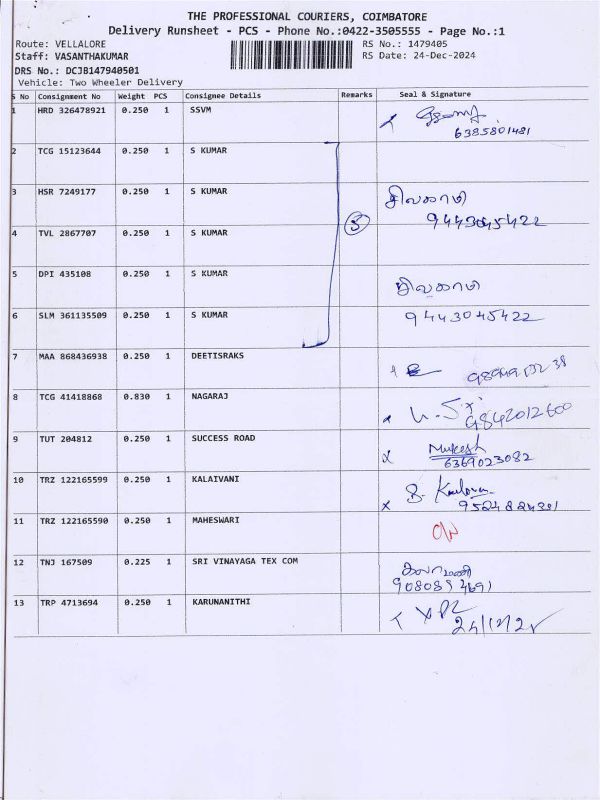 THE PROFESSIONAL COURIERS, COIMBATORE
Delivery Runsheet - PCS - Phone No.:0422-3505555 - Page No.:1
Route: VELLALORE RS No.: 1479405
Staff: VASANTHAKUMAR RS Date: 24-Dec-2024
DRS No.: DCJB147940501
Vehicle: Two Wheeler Delivery
S No Consignment No Weight PCS Consignee Details Remarks Seal & Signature
1 HRD 326478921 0.250 1 SSVM
6385801481
2 TCG 15123644 0.250 1 S KUMAR
3 HSR 7249177 0.250 1 S KUMAR சிவகாமி
5 9443045422
4 TVL 2867707 0.250 1 S KUMAR
5 DPI 435108 0.250 1 S KUMAR சிவகாமி
6 SLM 361135509 0.250 1 S KUMAR 9443045422
7 MAA 868436938 0.250 1 DEETISRAKS
8 TCG 41418868 0.830 1 NAGARAJ
9842012600
9 TUT 204812 0.250 1 SUCCESS ROAD Mukesh
6369023082
10 TRZ 122165599 0.250 1 KALAIVANI
11 TRZ 122165590 0.250 1 MAHESWARI
12 TNJ 167509 0.225 1 SRI VINAYAGA TEX COM
கலாமணி
13 TRP 4713694 0.250 1 KARUNANITHI